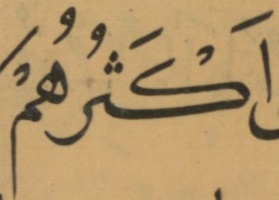 اَكْثَرُهُمْ